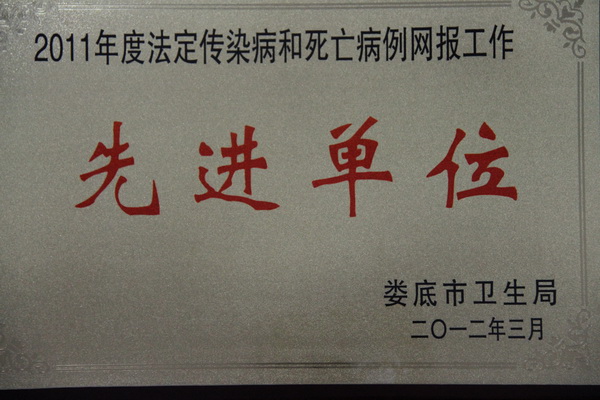 2011年度法定传染病和死亡病例网报工作
先进单位
娄底市卫生局
二〇一二年三月